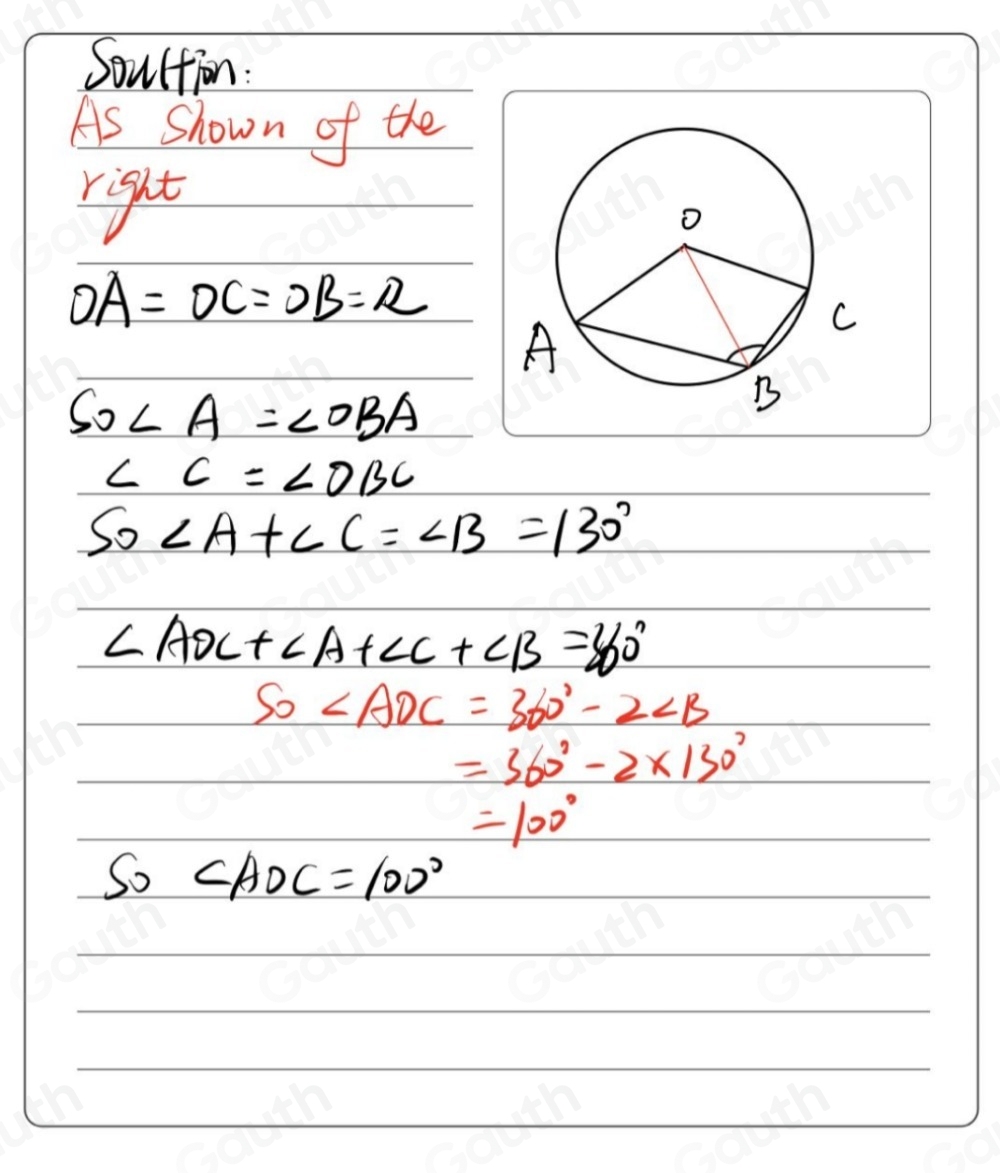 Soultion:
As Shown of the
right
OA = OC = OB = R
So ∠ A = ∠OBA
∠ C = ∠OBC
So ∠A + ∠C = ∠B = 130°
∠AOC + ∠A + ∠C + ∠B = 360°
So ∠AOC = 360° - 2∠B
= 360° - 2 × 130°
= 100°
So ∠AOC = 100°
O
A
B
C
Gauth